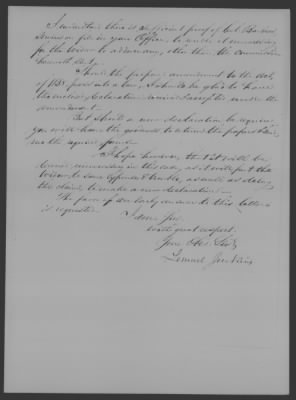 I maintain there is sufficient proof of
service on file in your Office, to make it unnecessary
for the widow to adduce any, other than the
Should the present amendment to the Act
of 1838, pass into a law, I should be glad to have
the enclosed declaration received under the
amendment.
But should a new declaration be required
you will have the goodness to return the papers
the required form.
I hope however, that it will be
deemed unnecessary in this case, as it will put the
widow to some expense & trouble, as well as delay
the claim, to make a new declaration.
The favor of an early answer to this letter
is requested.
I am Sir,
with great respect
Your Obt. Servt
Lemuel Jenkins